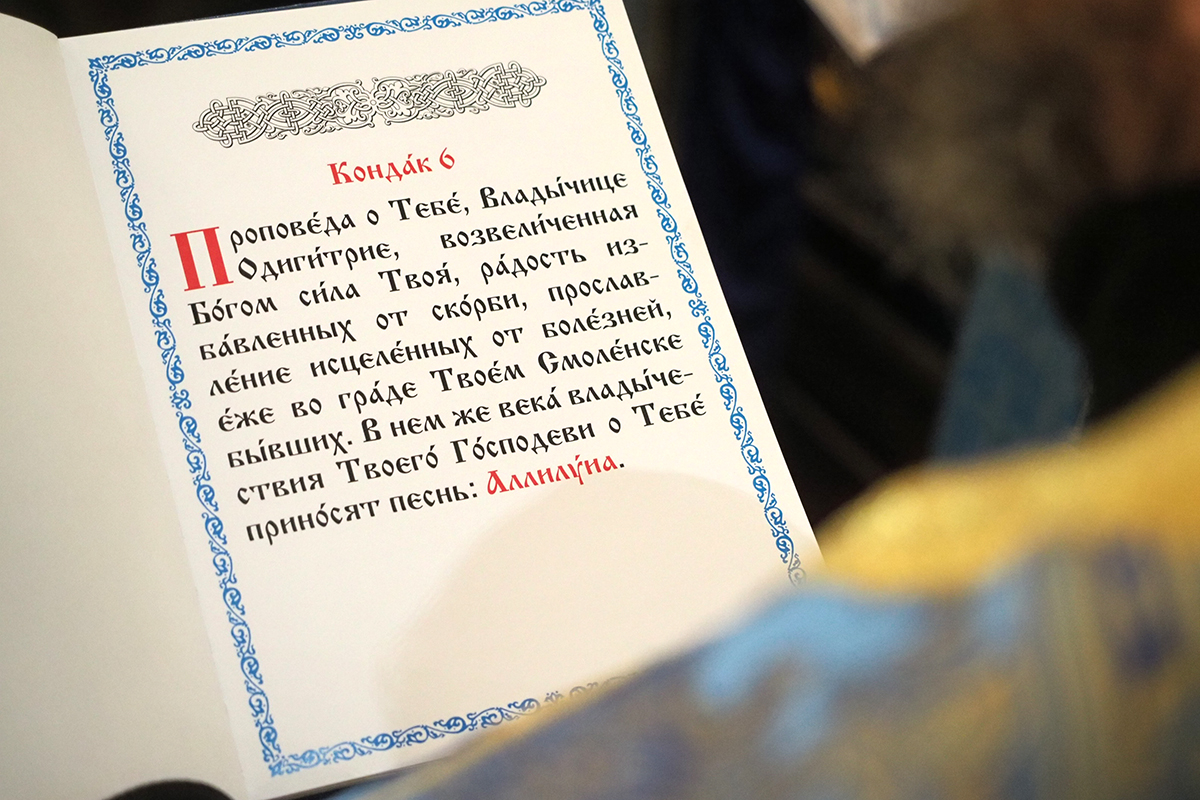 Конда́к 6
Пропове́да о Тебе́, Влады́чице
Одиги́трие, возвели́ченная
Бо́гом си́ла Твоя́, ра́дость из-
ба́вленных от ско́рби, прослав-
ле́ние исцеле́нных от боле́зней,
е́же во гра́де Твое́м Смоле́нске
бы́вших. В нем же века́ влады́че-
ствия Твоего́ Го́сподеви о Тебе́
прино́сят песнь: Аллилу́иа.